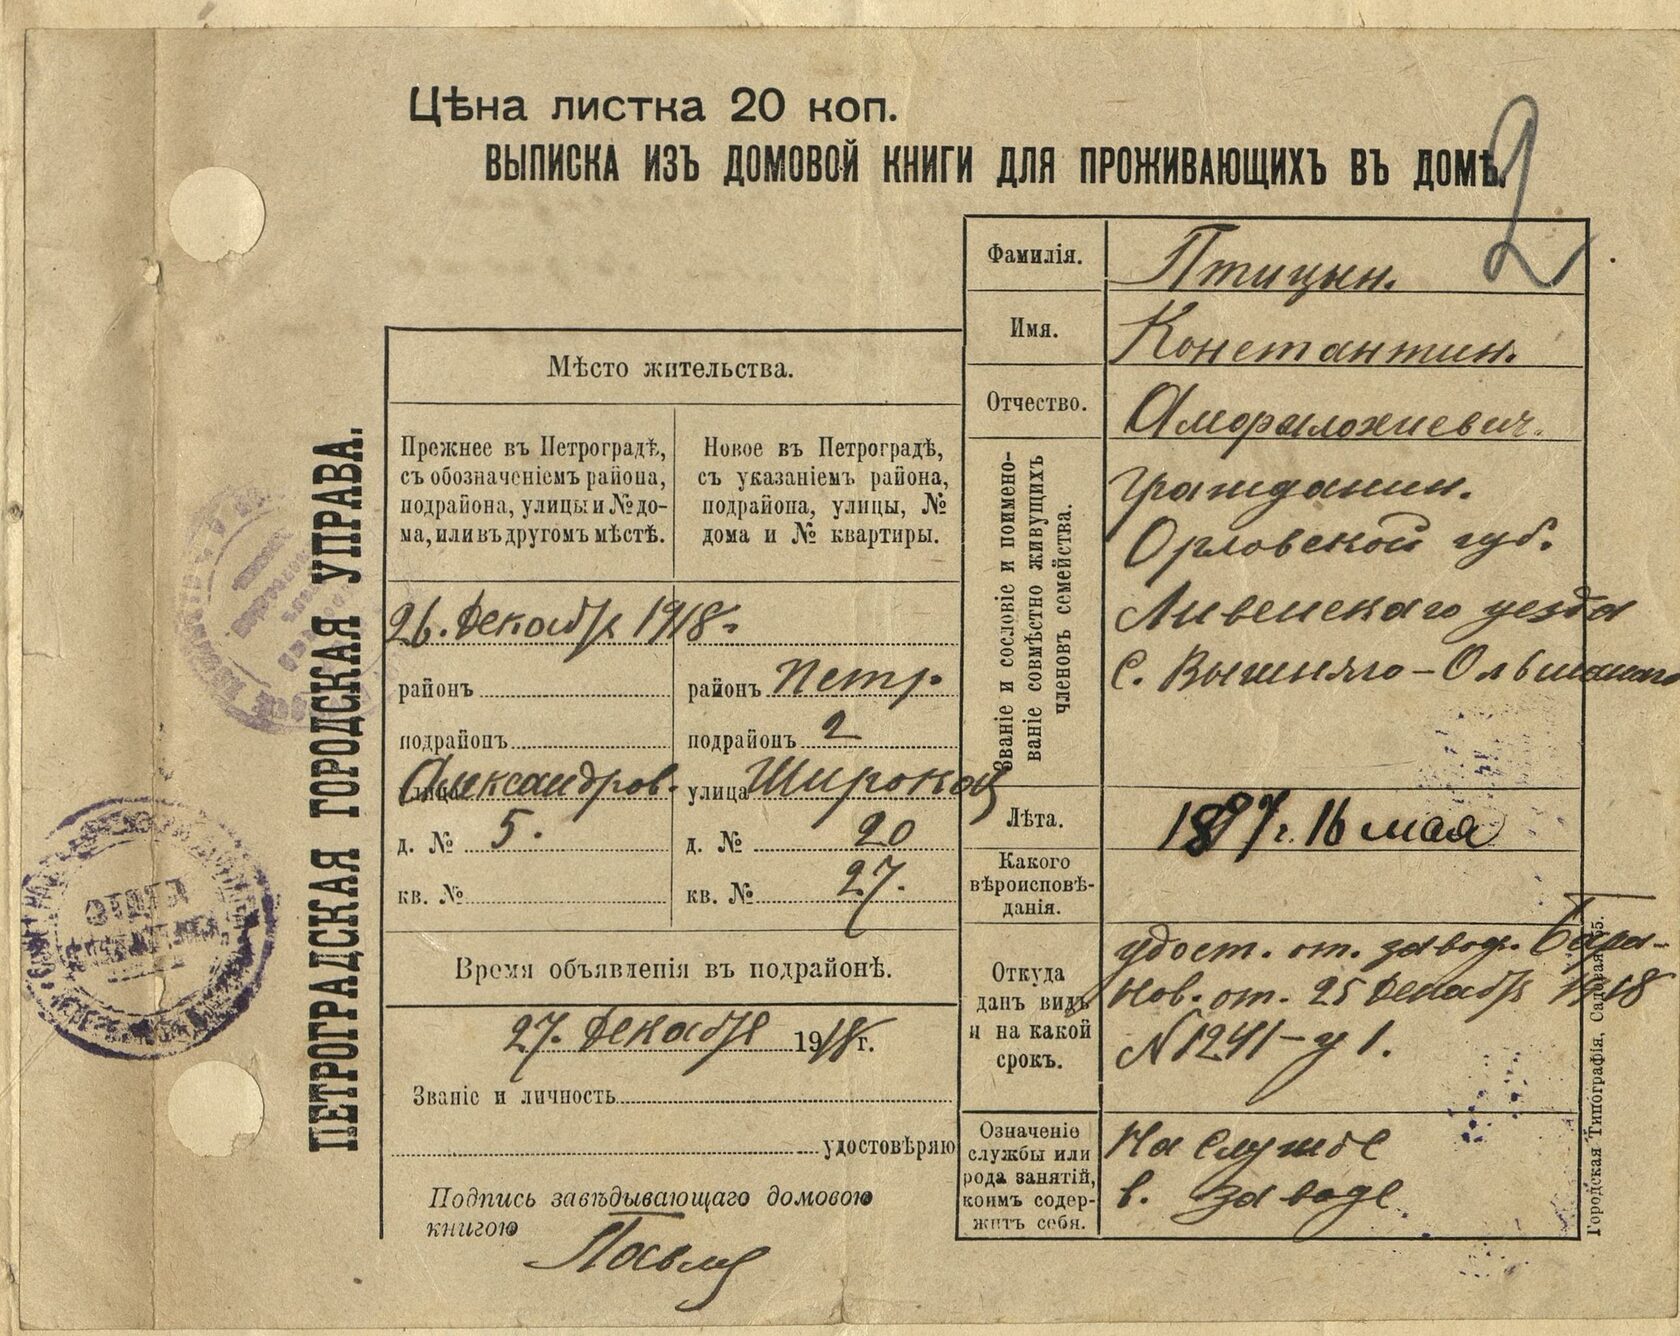 2
Цѣна листка 20 коп.
ВЫПИСКА ИЗЪ ДОМОВОЙ КНИГИ ДЛЯ ПРОЖИВАЮЩИХЪ ВЪ ДОМѢ.
ПЕТРОГРАДСКАЯ ГОРОДСКАЯ УПРАВА.
Мѣсто жительства.
Прежнее въ Петроградѣ,
съ обозначеніемъ района,
подрайона, улицы и № до-
ма, или въ другомъ мѣстѣ.
26. Декабр 1918 г.
районъ
подрайонъ
улица Александров.
д. № 5.
кв. №
Новое въ Петроградѣ,
съ указаніемъ района,
подрайона, улицы, №
дома и № квартиры.
районъ Петр.
подрайонъ 2
улица Широкая
д. № 20
кв. № 27.
Время объявленія въ подрайонѣ.
27. Декабря 1918 г.
Званіе и личность
удостовѣряю
Подпись завѣдывающаго домовою
книгою
Фамилія. Птицын.
Имя. Константин.
Отчество.
Званіе и сословіе и поимено-
ваніе совмѣстно живущихъ
членовъ семейства.
Гражданин.
Орловской губ.
Ливенскаго уезда
с. Вышняго-Ольшанаго
Лѣта. 1897 г. 16 мая
Какого
вѣроисповѣ-
данія.
Откуда
данъ видъ
и на какой
срокъ.
удост. от. завод. Бара-
нов. от. 25 Декабр 1918
N 1241-у 1.
Означеніе
службы или
рода занятій,
коимъ содер-
житъ себя.
на службе
в. заводе
Городская Типографія, Садовая, 55.